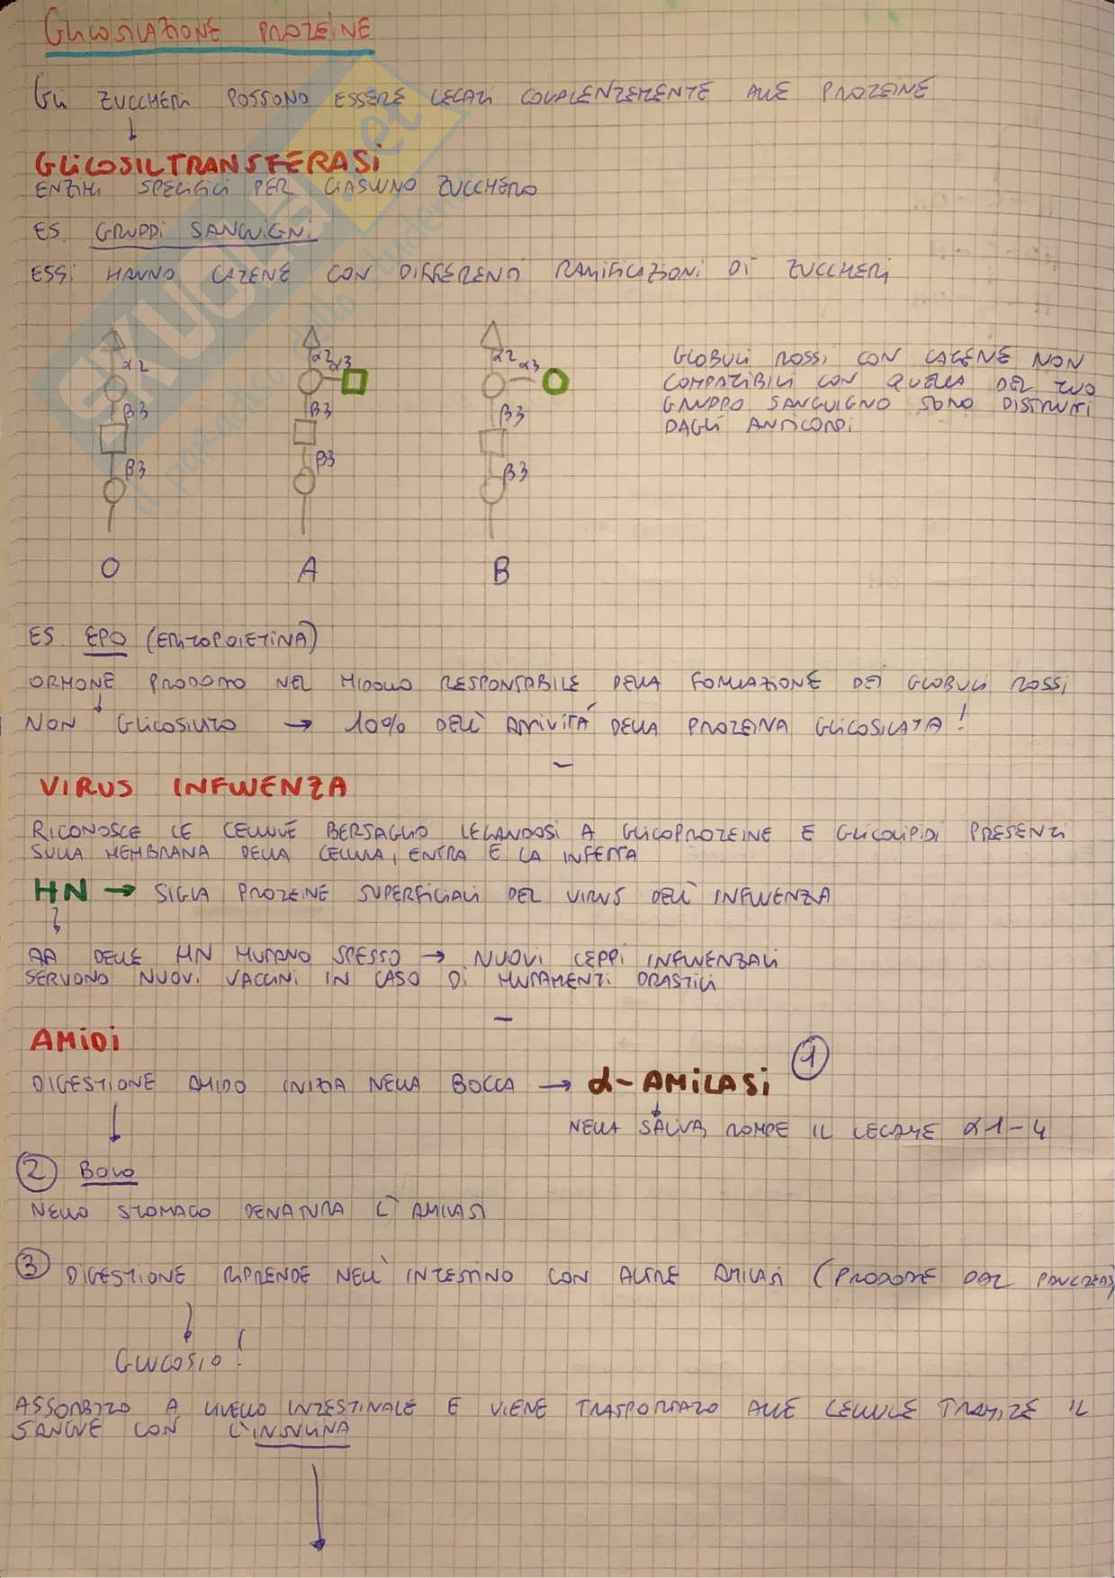 GLICOSILAZIONE PROTEINE
GLI ZUCCHERI POSSONO ESSERE LEGATI COVALENTEMENTE ALLE PROTEINE
↓
GLICOSILTRANSFERASI
ENZIMI SPECIFICI PER CIASCUNO ZUCCHERO
ES. GRUPPI SANGUIGNI
ESSI HANNO CATENE CON DIFFERENTI RAMIFICAZIONI DI ZUCCHERI
α2 β3 β3
α2 α3 β3 β3
α2 α3 β3 β3
GLOBULI ROSSI CON CATENE NON
COMPATIBILI CON QUELLA DEL TUO
GRUPPO SANGUIGNO SONO DISTRUTTI
DAGLI ANTICORPI
O A B
ES. EPO (ERITROPOIETINA)
ORMONE PRODOTTO NEL MIDOLLO RESPONSABILE DELLA FORMAZIONE DEI GLOBULI ROSSI
↓
NON GLICOSILATO → 10% DELL'ATTIVITÁ DELLA PROTEINA GLICOSILATA!
VIRUS INFLUENZA
RICONOSCE LE CELLULE BERSAGLIO LEGANDOSI A GLICOPROTEINE E GLICOLIPIDI PRESENTI
SULLA MEMBRANA DELLA CELLULA, ENTRA E LA INFETTA
HN → SIGLA PROTEINE SUPERFICIALI DEL VIRUS DELL'INFLUENZA
↓
AA DELLE HN MUTANO SPESSO → NUOVI CEPPI INFLUENZALI
SERVONO NUOVI VACCINI IN CASO DI MUTAMENTI DRASTICI
AMIDI
DIGESTIONE AMIDO INIZIA NELLA BOCCA → α-AMILASI ①
↓
NELLA SALIVA, ROMPE IL LEGAME α1-4
② BOLO
NELLO STOMACO DENATURA L'AMILASI
③ DIGESTIONE RIPRENDE NELL'INTESTINO CON ALTRE AMILASI (PRODOTTE DAL PANCREAS)
↓
GLUCOSIO!
ASSORBITO A LIVELLO INTESTINALE E VIENE TRASPORTATO ALLE CELLULE TRAMITE IL
SANGUE CON L'INSULINA
↓